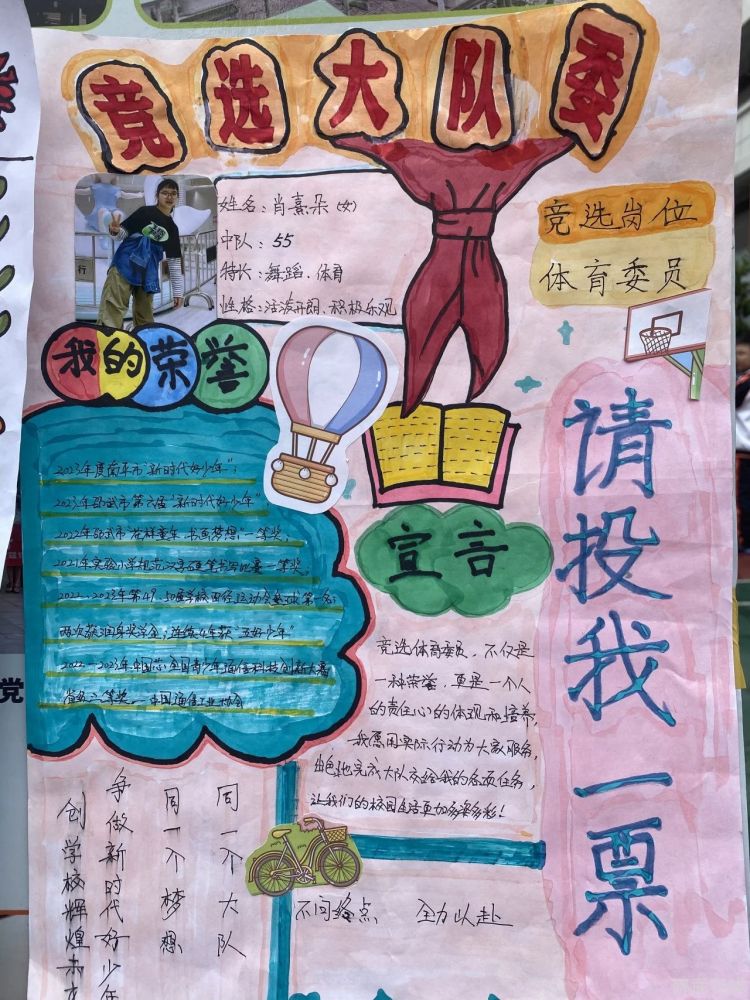 竞选大队委
姓名：肖熹朵（女）
中队：55
特长：舞蹈、体育
性格：活泼开朗、积极乐观
竞选岗位
体育委员
我的荣誉
2023年度南平市"新时代好少年"；
2023年邵武市第六届"新时代好少年"
2022年邵武市"花样童年 书画梦想"一等奖；
2021年实验小学规范汉字硬笔书写比赛一等奖；
2022、2023年第49、50届学校田径运动会垒球第一名；
两次获润身奖学金；连续4年获"五好少年"
2022-2023年中国芯全国青少年通信科技创新大赛
省级二等奖。中国通信工业协会
宣言
竞选体育委员，不仅是
一种荣誉，更是一个人
的责任心的体现和培养，
我愿用实际行动为大家服务，
出色地完成大队交给我的各项任务，
让我们的校园生活更加多姿多彩！
请投我一票
同一个大队
同一个梦想
争做新时代好少年
创学校辉煌未来
不问终点 全力以赴
行
党